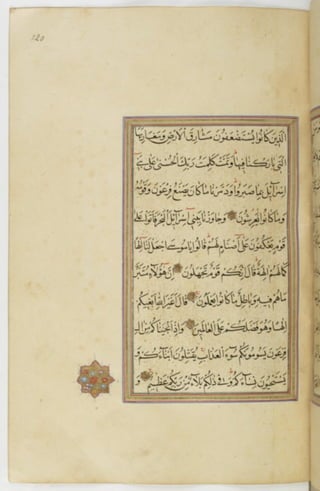 120
الَّذِينَ كَانُوا يُسْتَضْعَفُونَ مَشَارِقَ الْأَرْضِ وَمَغَارِبَهَا
الَّتِي بَارَكْنَا فِيهَا وَتَمَّتْ كَلِمَتُ رَبِّكَ الْحُسْنَى عَلَى بَنِي
إِسْرَائِيلَ بِمَا صَبَرُوا وَدَمَّرْنَا مَا كَانَ يَصْنَعُ فِرْعَوْنُ وَقَوْمُهُ
وَمَا كَانُوا يَعْرِشُونَ وَجَاوَزْنَا بِبَنِي إِسْرَائِيلَ الْبَحْرَ فَأَتَوْا عَلَى
قَوْمٍ يَعْكُفُونَ عَلَى أَصْنَامٍ لَهُمْ قَالُوا يَا مُوسَى اجْعَلْ لَنَا إِلَهًا
كَمَا لَهُمْ آلِهَةٌ قَالَ إِنَّكُمْ قَوْمٌ تَجْهَلُونَ إِنَّ هَؤُلَاءِ مُتَبَّرٌ
مَا هُمْ فِيهِ وَبَاطِلٌ مَا كَانُوا يَعْمَلُونَ قَالَ أَغَيْرَ اللَّهِ أَبْغِيكُمْ
إِلَهًا وَهُوَ فَضَّلَكُمْ عَلَى الْعَالَمِينَ وَإِذْ أَنْجَيْنَاكُمْ مِنْ آلِ
فِرْعَوْنَ يَسُومُونَكُمْ سُوءَ الْعَذَابِ يُقَتِّلُونَ أَبْنَاءَكُمْ وَ
يَسْتَحْيُونَ نِسَاءَكُمْ وَفِي ذَلِكُمْ بَلَاءٌ مِنْ رَبِّكُمْ عَظِيمٌ وَ